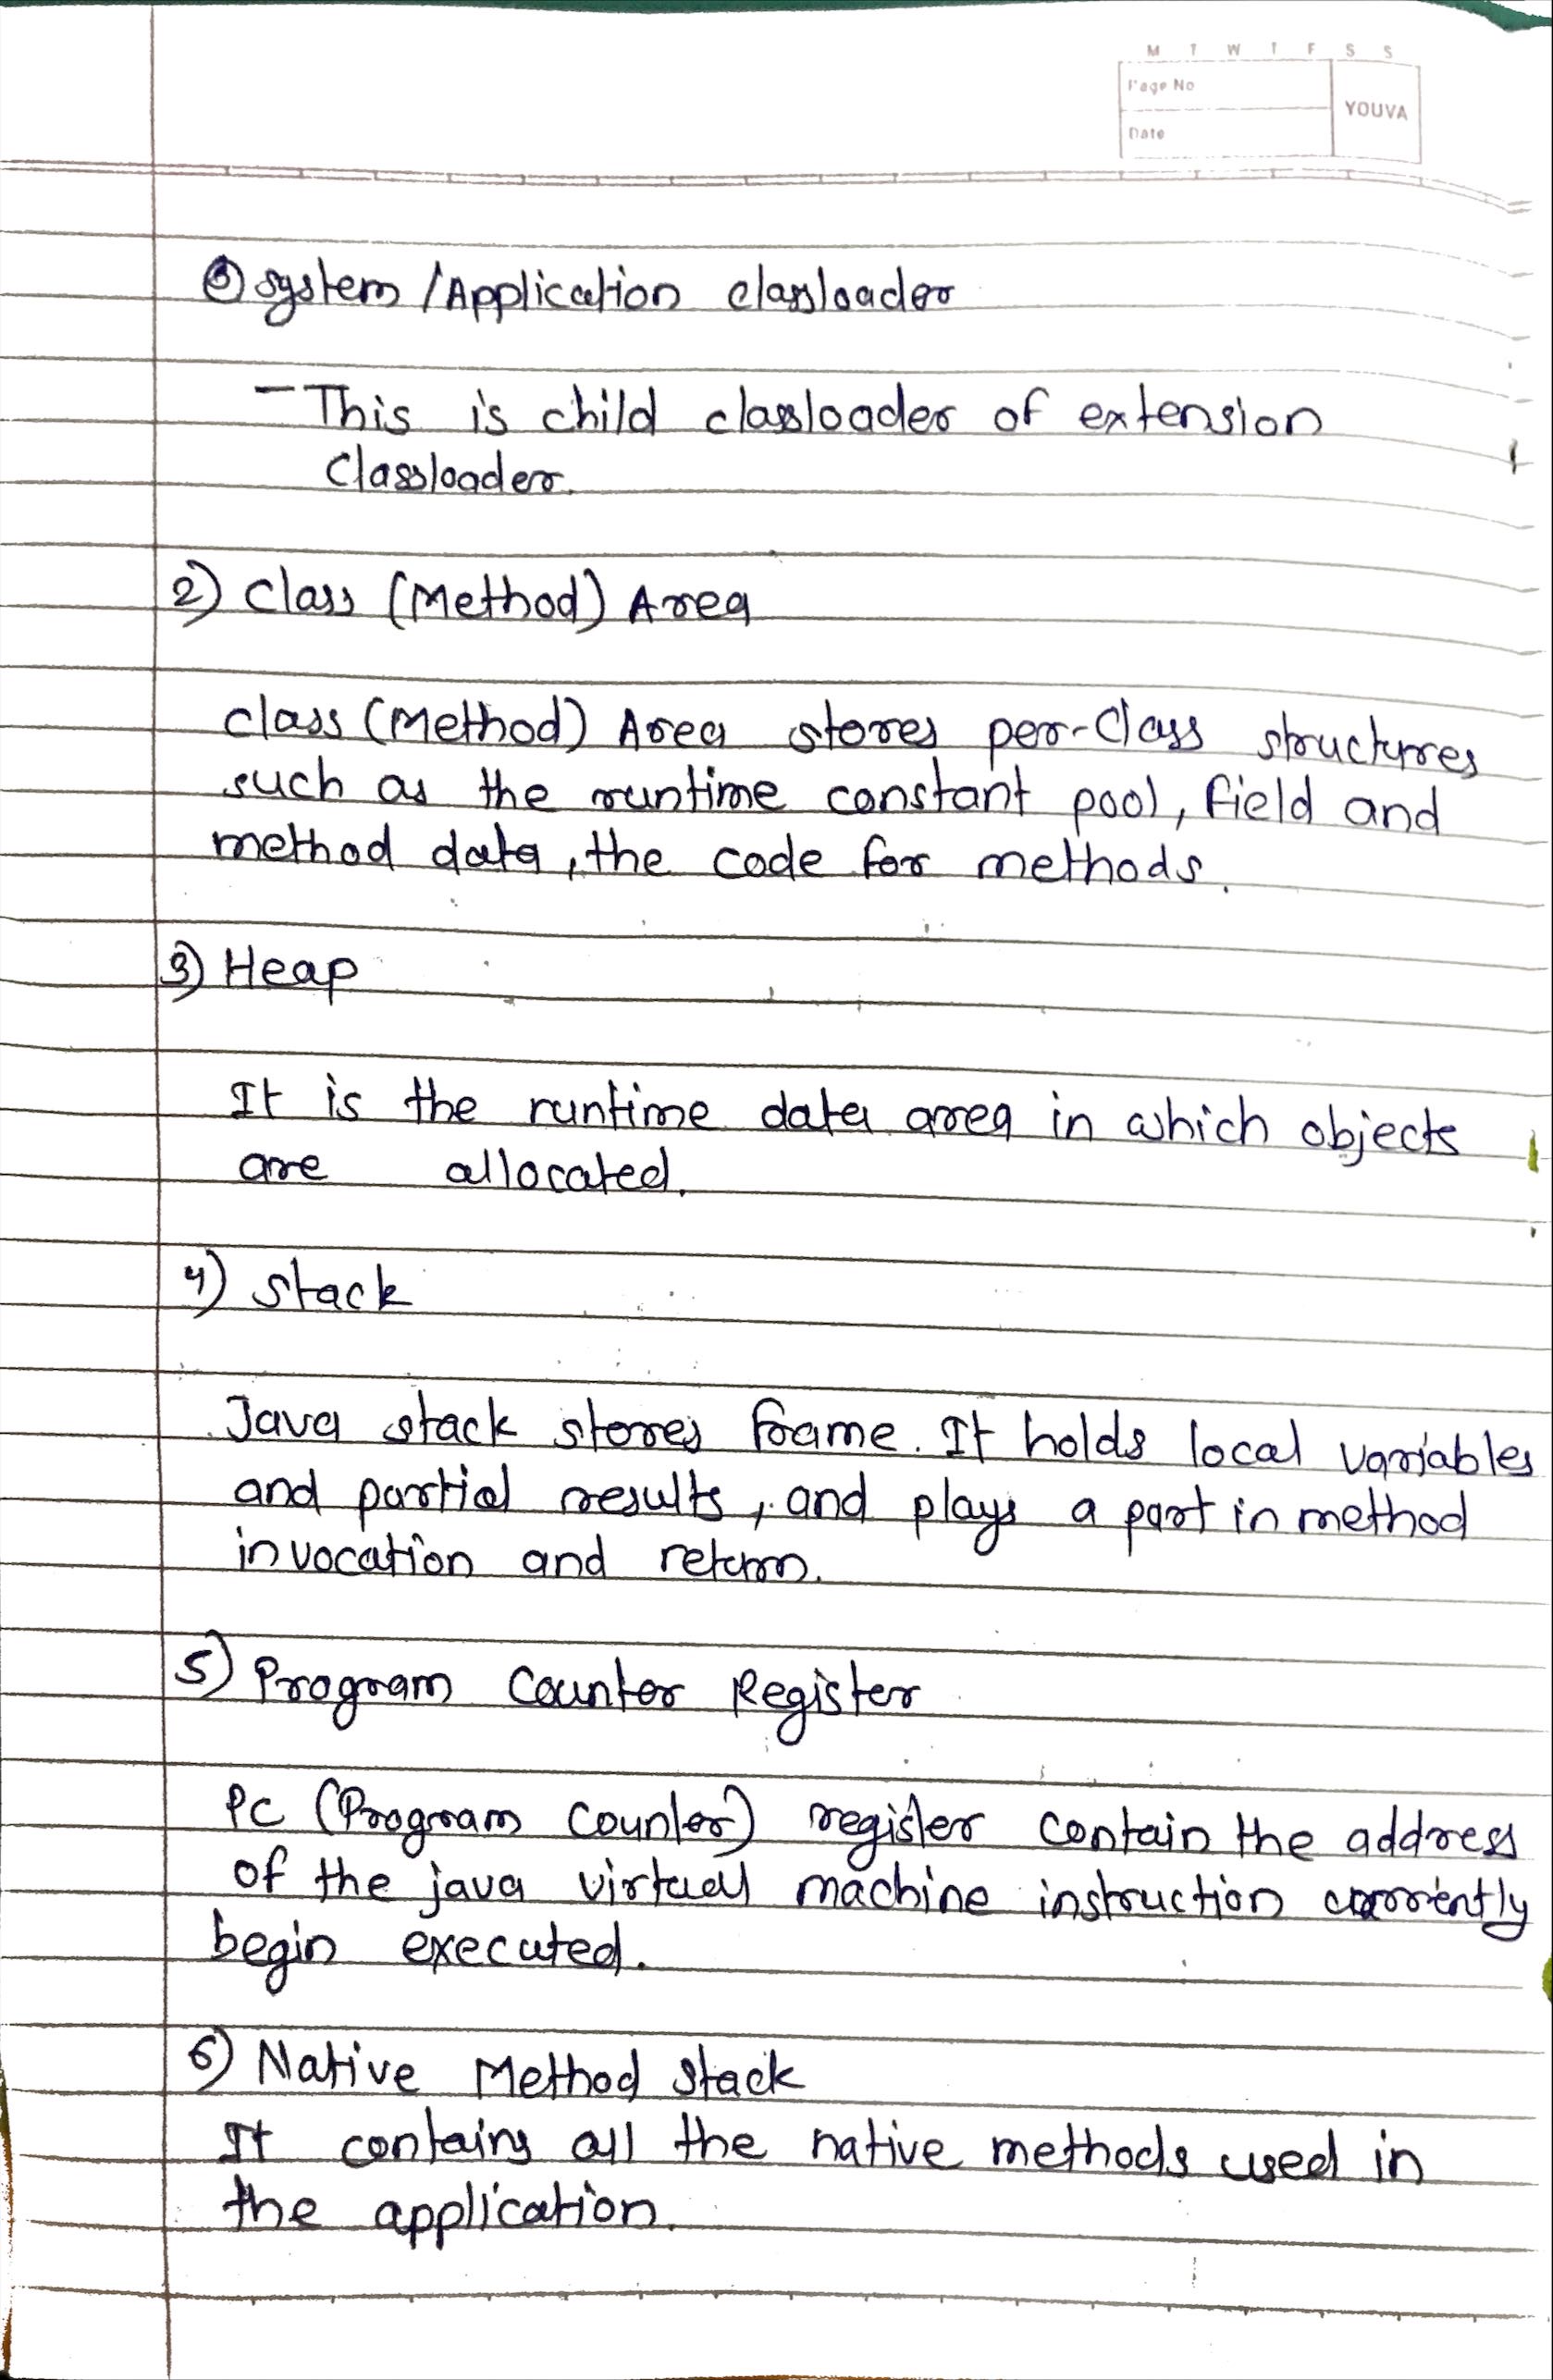 M T W T F S S
Page No
YOUVA
Date
③ system / Application classloader
- This is child classloader of extension
Classloader.
2) Class (Method) Area
class (Method) Area stores per-Class structures
such as the runtime constant pool, field and
method data, the code for methods.
3) Heap
It is the runtime data area in which objects
are allocated.
4) stack
Java stack stores frame. It holds local variables
and partial results, and plays a part in method
invocation and return.
5) Program Counter Register
PC (Program Counter) register contain the address
of the java virtual machine instruction currently
begin executed.
6) Native Method stack
It contains all the native methods used in
the application.